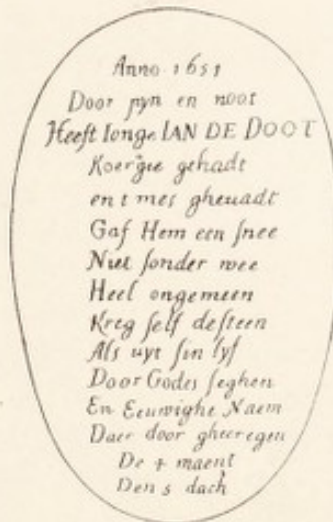 Anno 1651
Door pyn en noot
Heeft Ionge IAN DE DOOT
Koergie gehadt
en t mes gheuadt
Gaf Hem een ſnee
Niet ſonder wee
Heel ongemeen
Kreg ſelf deſteen
Als uyt ſin lyf
Door Godes ſeghen
En Eeuwighe Naem
Daer door ghecregen
De 4 maent
Den 5 dach